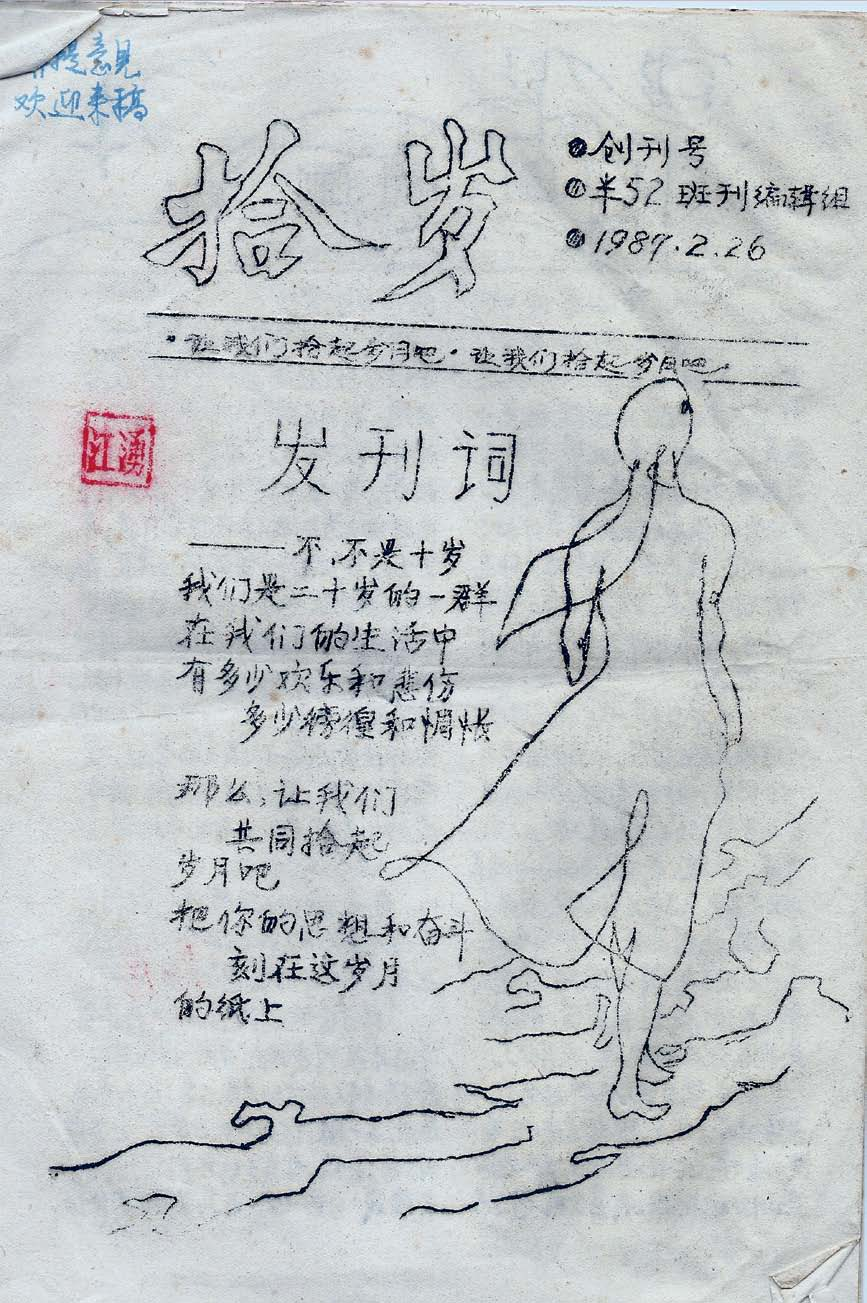 提意见
欢迎来稿
拾岁
创刊号
半52班刊编辑组
1987.2.26
·让我们拾起岁月吧·让我们拾起岁月吧
江湧
发刊词
——不,不是十岁
我们是二十岁的一群
在我们的生活中
有多少欢乐和悲伤
多少徬徨和惆怅
那么,让我们
共同拾起
岁月吧
把你的思想和奋斗
刻在这岁月
的纸上